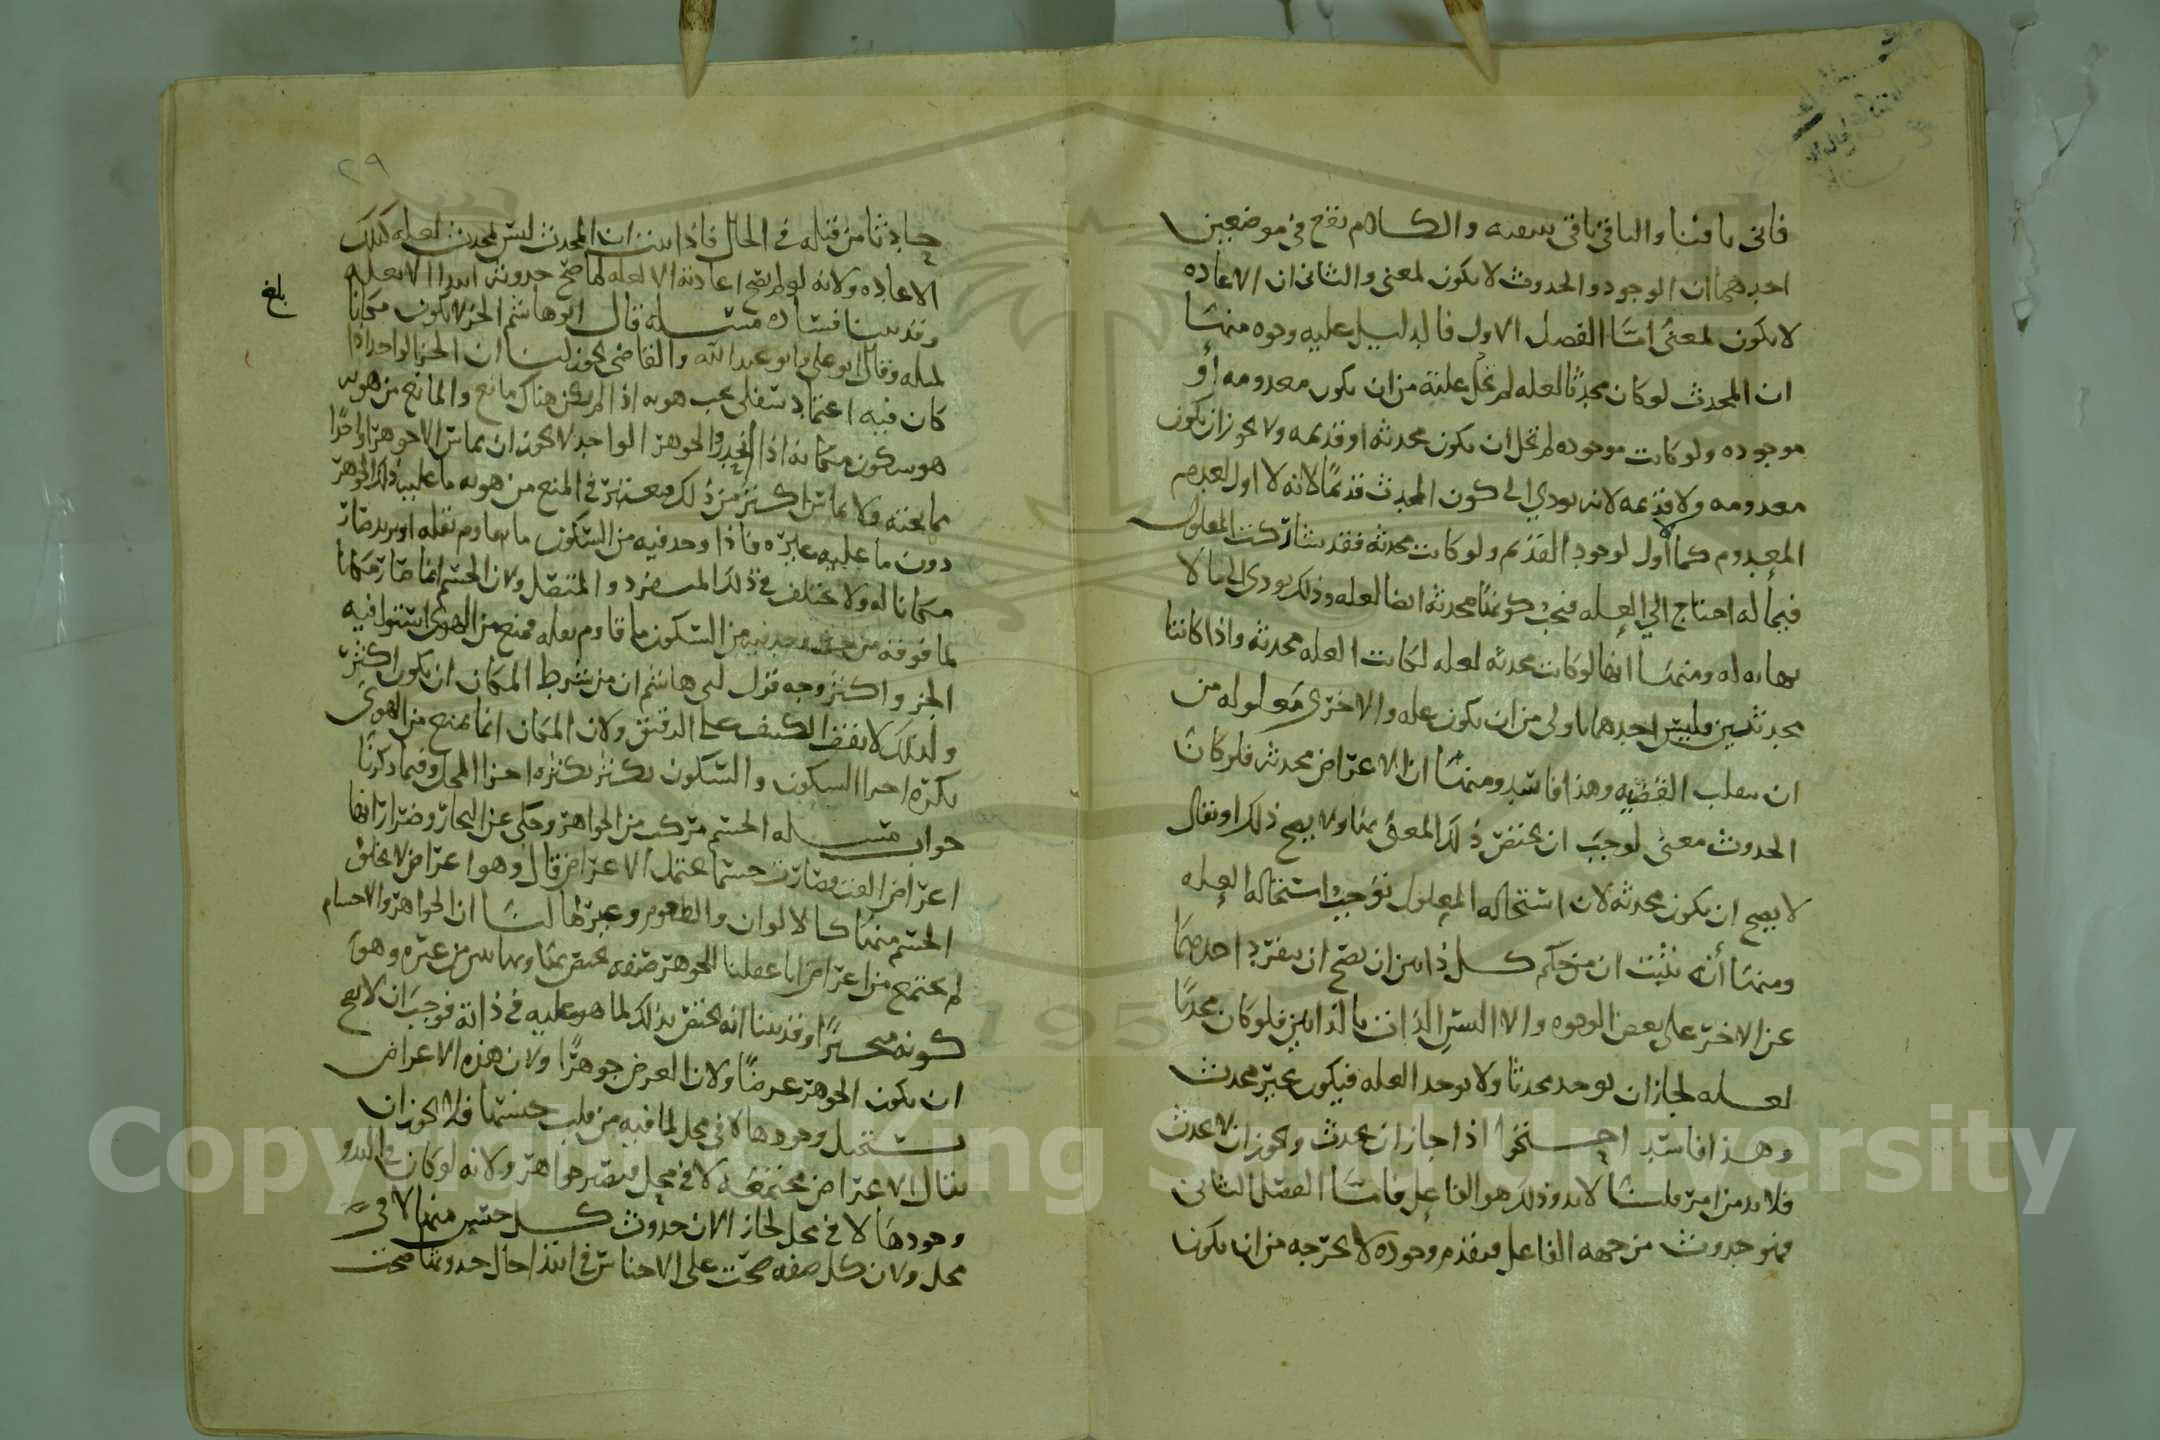 فانى بافنا والباقي باقى ببقيه والكلام يقع في موضعين
احدهما ان الوجود والحدوث لا يكون لمعنى والثاني ان الاعاده
لا يكون لمعنى امّا الفصل الاول فالدليل عليه وجوه منها
ان المحدث لو كان محدثا لعله لم تخل علته من ان يكون معدومه أو
موجوده ولو كانت موجوده لم تخل ان يكون محدثه او قديمه ولا يجوز ان يكون
معدومه ولا قديمه لانه يودي الى كون المحدث قديمًا لانه لا اول لعدم
المعدوم كما لا أول لوجود القديم ولو كانت محدثه فقد شاركت المعلول
فيما له احتاج الي العله فيجب كونها محدثه ايضا لعله وذلك يودي الى ما لا
نهايه له ومنها انها لو كانت محدثه لعله لكانت العله محدثه واذا كانتا
محدثتين فليس احدهما باولى من ان يكون عله والاخرى معلوله من
ان ينقلب القضيه وهذا فاسد ومنها ان الاعراض محدثه فلو كان
الحدوث معنى لوجب ان يختص ذلك المعنى بها ولا يصح ذلك او نقال
لا يصح ان يكون محدثه لان استحاله المعلول توجب استحاله العله
ومنها أنه يثبت ان من حكم كل ذاتين ان يصح ان ينفرد احدهما
عن الاخر على بعض الوجوه والا التبس الذات بالذاتين فلو كان محدثا
لعله لجاز ان يوجد محدثا ولا يوجد العله فيكون غير محدث
وهذا فاسد احتجوا اذا جاز ان يحدث ويجوز ان لا يحدث
فلا بد من امر قلنا لا بد وذلك هو الفاعل فامّا الفصل الثاني
فهو حدوث من جهه الفاعل فتقدم وجوده لا يخرجه من ان يكون
٢٩
حادثا من قبله في الحال فاذا ثبت ان المحدث ليس لمحدث لعله كذلك
الاعاده ولانه لو لم يصح اعادته الا لعله لما صح حدوثه ابتدا الا بعله
وقد بينا فساده مسله قال ابو هاشم الجزء لا يكون مكانا
بلغ
لمثله وقال ابو علي وابو عبد الله والقاضي يجوز لنا ان الجزء الواحد اذا
كان فيه اعتماد سفلى يجب هويه اذا لم يكن هناك مانع والمانع من هويه
هو سكون مكانه اذا انحدر والجوهر الواحد لا يجوز ان يماس الا جوهرا واحدًا
مما تحته ولا يماس اكثر من ذلك فيعتبر في المنع من هويه ما عليه ذلك الجوهر
دون ما عليه غيره فاذا وجد فيه من السكون ما يقاوم ثقله او يزيد صار
مكانا له ولا يختلف في ذلك المنفرد والمتصل ولان الجسم انما صار مكانا
لما فوقه من حيث وجد فيه من السكون ما قاوم ثقله فمنع من الهوى استوا فيه
الجزء واكثر وجه قول ابي هاشم ان من شرط المكان ان يكون اكثر
ولذلك لا يقف الكثيف على الدقيق ولان المكان انما يمنع من الهوى
بكثره اجزا السكون والسكون يكثر بكثره اجزا المحل وفيما ذكرنا
جواب مسله الجسم مركب من الجواهر وحكى عن النجار وضرار انها
اعراض الفت فصارت جسما يحتمل الاعراض قال وهو اعراض لا يخلو
الجسم منها كالالوان والطعوم وغيرها لنا ان الجواهر والاجسام
لم يجتمع من اعراض انا عقلنا للجوهر صفه يختص بها ويباين من غيره وهو
كونه متحيزًا وقد بينا انه يختص بذلك لما هو عليه في ذاته فوجب ان لا يصح
ان يكون الجوهر عرضًا ولان العرض جوهرًا ولان هذه الاعراض
يستحيل وجودها لا في محل لما فيه من قلب جنسها فلا يجوز ان
يقال الاعراض مجتمعه لا في محل فيصير جواهر ولانه لو كان في البدو
وجودها لا في محل لجاز الان حدوث كل جنس منها لا في
محل ولان كل صفه صحت على الاجناس في ابتدا حال حدوثها صحت
Copyright © King Saud University
195